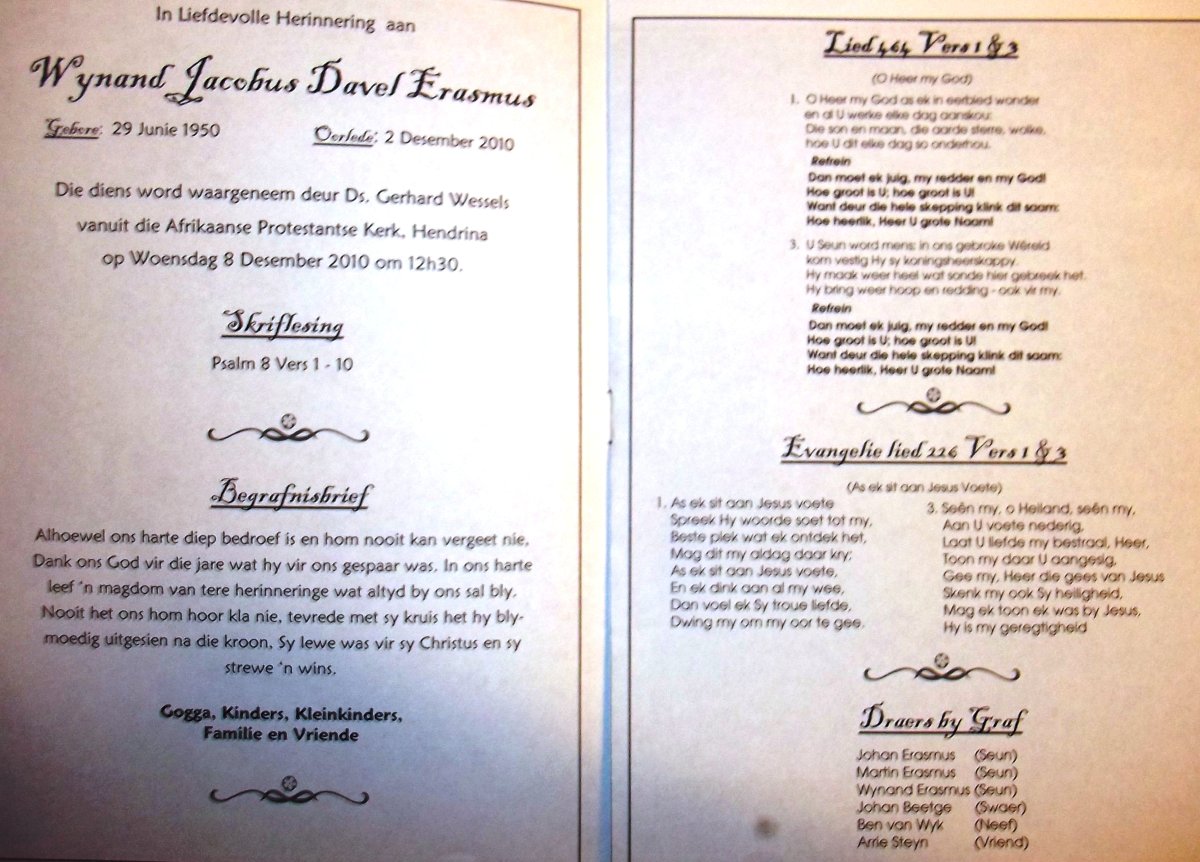 In Liefdevolle Herinnering aan
Wynand Jacobus Davel Erasmus
Gebore: 29 Junie 1950 Oorlede: 2 Desember 2010
Die diens word waargeneem deur Ds. Gerhard Wessels
vanuit die Afrikaanse Protestantse Kerk, Hendrina
op Woensdag 8 Desember 2010 om 12h30.
Skriflesing
Psalm 8 Vers 1 - 10
Begrafnisbrief
Alhoewel ons harte diep bedroef is en hom nooit kan vergeet nie,
Dank ons God vir die jare wat hy vir ons gespaar was. In ons harte
leef 'n magdom van tere herinneringe wat altyd by ons sal bly.
Nooit het ons hom hoor kla nie, tevrede met sy kruis het hy bly-
moedig uitgesien na die kroon, Sy lewe was vir sy Christus en sy
strewe 'n wins.
Gogga, Kinders, Kleinkinders,
Familie en Vriende
Lied 464 Vers 1 & 3
(O Heer my God)
1. O Heer my God as ek in eerbied wonder
en al U werke elke dag aanskou:
Die son en maan, die aarde sterre, wolke,
hoe U dit elke dag so onderhou.
Refrein
Dan moet ek juig, my redder en my God!
Hoe groot is U; hoe groot is U!
Want deur die hele skepping klink dit saam:
Hoe heerlik, Heer U grote Naam!
3. U Seun word mens; in ons gebroke Wêreld
kom vestig Hy sy koningsheerskappy.
Hy maak weer heel wat sonde hier gebreek het.
Hy bring weer hoop en redding - ook vir my.
Refrein
Dan moet ek juig, my redder en my God!
Hoe groot is U; hoe groot is U!
Want deur die hele skepping klink dit saam:
Hoe heerlik, Heer U grote Naam!
Evangelie lied 226 Vers 1 & 3
(As ek sit aan Jesus Voete)
1. As ek sit aan Jesus voete
Spreek Hy woorde soet tot my,
Beste plek wat ek ontdek het,
Mag dit my aldag daar kry;
As ek sit aan Jesus voete,
En ek dink aan al my wee,
Dan voel ek Sy troue liefde,
Dwing my om my oor te gee.
3. Seên my, o Heiland, seên my,
Aan U voete nederig,
Laat U liefde my bestraal, Heer,
Toon my daar U aangesig,
Gee my, Heer die gees van Jesus
Skenk my ook Sy heiligheid,
Mag ek toon ek was by Jesus,
Hy is my geregtigheid
Draers by Graf
Johan Erasmus (Seun)
Martin Erasmus (Seun)
Wynand Erasmus (Seun)
Johan Beetge (Swaer)
Ben van Wyk (Neef)
Arrie Steyn (Vriend)